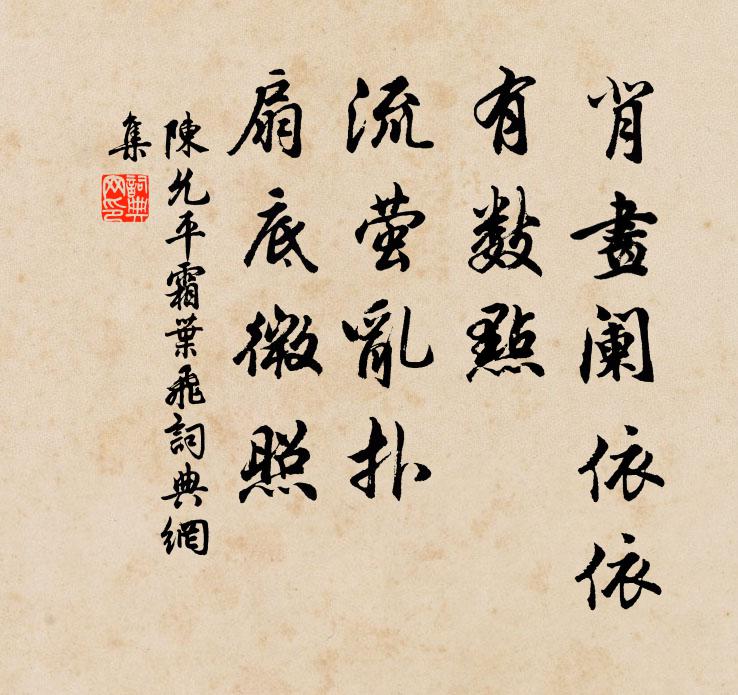 背畫阑依依
有數點
流萤亂扑
扇底微照
陳允平霜葉飛詞典網
集
詞典
网印